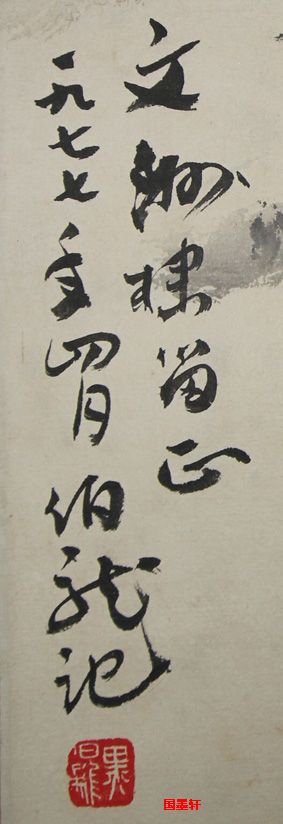 文洲棣留正
一九七七年四月伯龙记
国墨轩